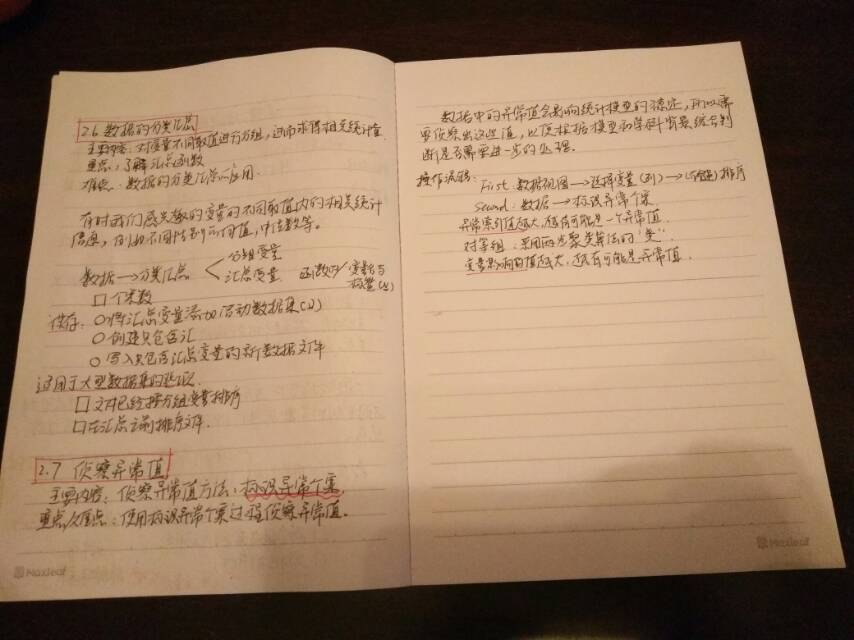 2.6 数据的分类汇总
主要内容:对变量不同取值进行分组,进而求得相关统计量
重点:了解汇总函数
难点:数据的分类汇总应用.
有时我们感兴趣的变量的不同取值内的相关统计
信息,例如不同性别的均值,中位数等。
数据→分类汇总
分组变量
汇总变量 函数(F)/变量名与标签(N)
□个案数
保存:○将汇总变量添加活动数据集(D)
○创建只包含汇
○写入只包含汇总变量的新数据文件
适用于大型数据集的选项.
□文件已经按分组变量排序
□在汇总之前排序文件.
2.7 侦察异常值
主要内容:侦察异常值方法:标识异常个案
重点/难点:使用标识异常个案过程侦察异常值。
Maxleaf
数据中的异常值会影响统计模型的稳定,所以需
要侦察出这些值,以便根据模型和学科背景综合判
断是否需要进一步的处理。
操作流程:First:数据视图→选择变量(列)→(右键)排序
Second:数据→标识异常个案
异常索引值越大,越有可能是一个异常值.
对等组:采用两步聚类算法的"类".
变量影响的值越大,越有可能是异常值.
Maxleaf